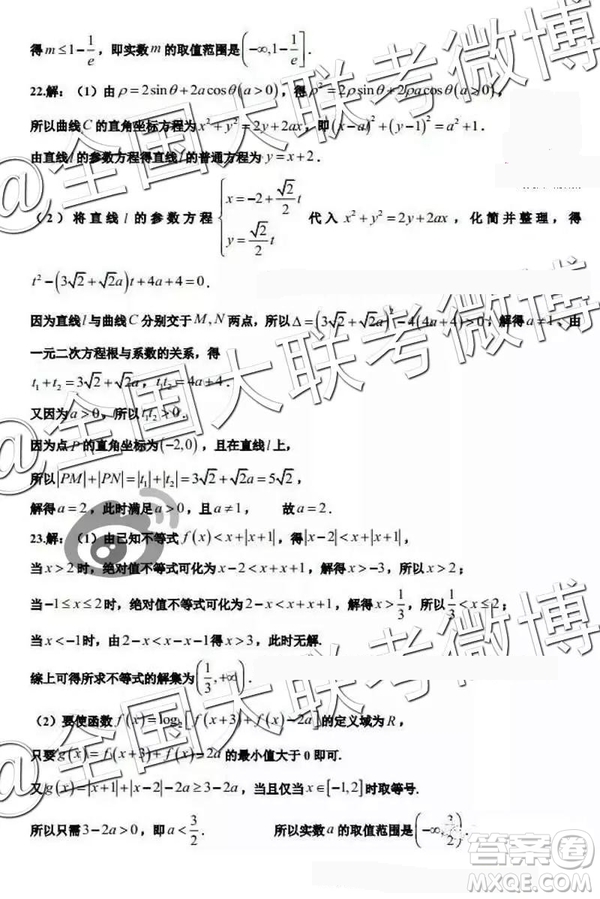 得 m ≤ 1 - 1/e，即实数 m 的取值范围是 (-∞, 1 - 1/e].
22.解：（1）由 ρ = 2sinθ + 2a cosθ (a > 0)，得 ρ² = 2ρ sinθ + 2ρa cosθ (a > 0)，
所以曲线 C 的直角坐标方程为 x² + y² = 2y + 2ax，即 (x - a)² + (y - 1)² = a² + 1.
由直线 l 的参数方程得直线 l 的普通方程为 y = x + 2.
（2）将直线 l 的参数方程 { x = -2 + (√2/2)t, y = (√2/2)t 代入 x² + y² = 2y + 2ax，化简并整理，得
t² - (3√2 + √2a)t + 4a + 4 = 0.
因为直线 l 与曲线 C 分别交于 M, N 两点，所以 Δ = (3√2 + √2a)² - 4(4a + 4) > 0，解得 a ≠ 1、由
一元二次方程根与系数的关系，得
t₁ + t₂ = 3√2 + √2a，t₁t₂ = 4a + 4.
又因为 a > 0，所以 t₁t₂ > 0.
因为点 P 的直角坐标为 (-2,0)，且在直线 l 上，
所以 |PM| + |PN| = |t₁| + |t₂| = 3√2 + √2a = 5√2，
解得 a = 2，此时满足 a > 0，且 a ≠ 1， 故 a = 2.
23.解：（1）由已知不等式 f(x) < x + |x + 1|，得 |x - 2| < x + |x + 1|，
当 x > 2 时，绝对值不等式可化为 x - 2 < x + x + 1，解得 x > -3，所以 x > 2；
当 -1 ≤ x ≤ 2 时，绝对值不等式可化为 2 - x < x + x + 1，解得 x > 1/3，所以 1/3 < x ≤ 2；
当 x < -1 时，由 2 - x < x - x - 1 得 x > 3，此时无解.
综上可得所求不等式的解集为 (1/3, +∞).
（2）要使函数 f(x) = log₂[f(x + 3) + f(x) - 2a] 的定义域为 R，
只要 g(x) = f(x + 3) + f(x) - 2a 的最小值大于 0 即可.
又 g(x) = |x + 1| + |x - 2| - 2a ≥ 3 - 2a，当且仅当 x ∈ [-1,2] 时取等号.
所以只需 3 - 2a > 0，即 a < 3/2. 所以实数 a 的取值范围是 (-∞, 3/2).
@全国大联考微博
@全国大联考微博
@全国大联考微博
答案圈
MXQE.COM